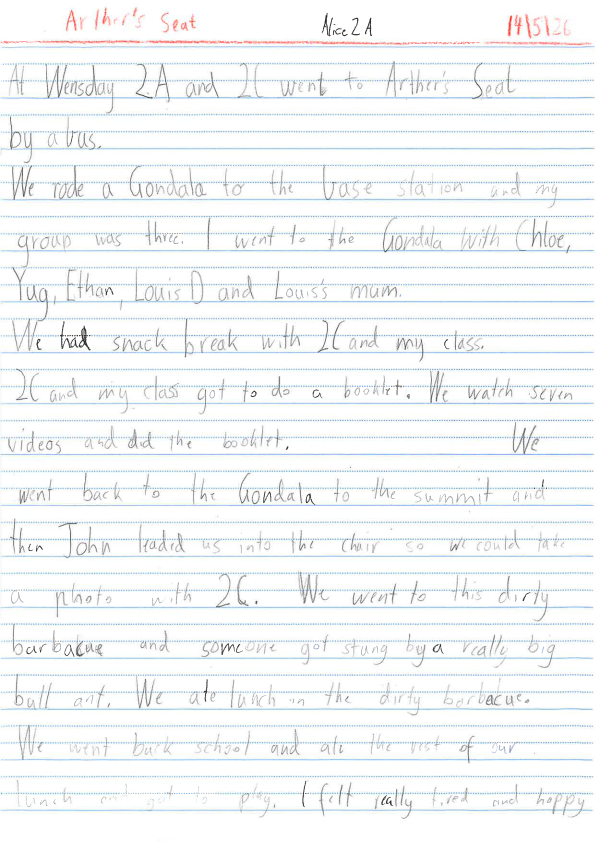 Arther's Seat Alice 2A 14/5/26
At Wensday 2A and 2C went to Arther's Seat
by a bus.
We rode a Gondala to the base station and my
group was three. I went to the Gondala with Chloe,
Yug, Ethan, Louis D and Louis's mum.
We had snack break with 2C and my class.
2C and my class got to do a booklet. We watch seven
videos and did the booklet. We
went back to the Gondala to the summit and
then John leaded us into the chair so we could take
a photo with 2C. We went to this dirty
barbacue and someone got stung by a really big
bull ant. We ate lunch in the dirty barbacue.
We went back school and ate the rest of our
lunch and got to play. I felt really tired and happy